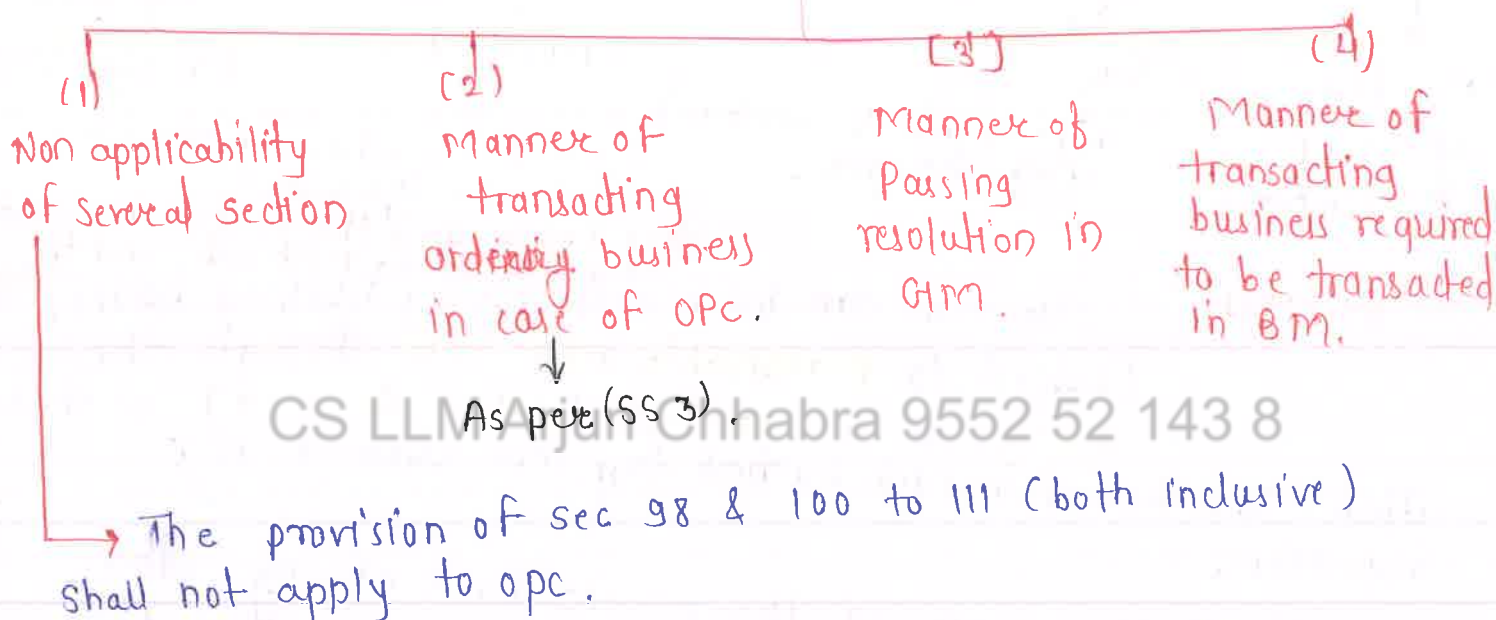 (1)
Non applicability
of several section
(2)
Manner of
transacting
ordinary business
in case of OPC.
As per (SS 3).
[3]
Manner of
Passing
resolution in
GM.
(4)
Manner of
transacting
business required
to be transacted
in BM.
CS LLM Arjun Chhabra 9552 52 143 8
The provision of sec 98 & 100 to 111 (both inclusive)
shall not apply to opc.